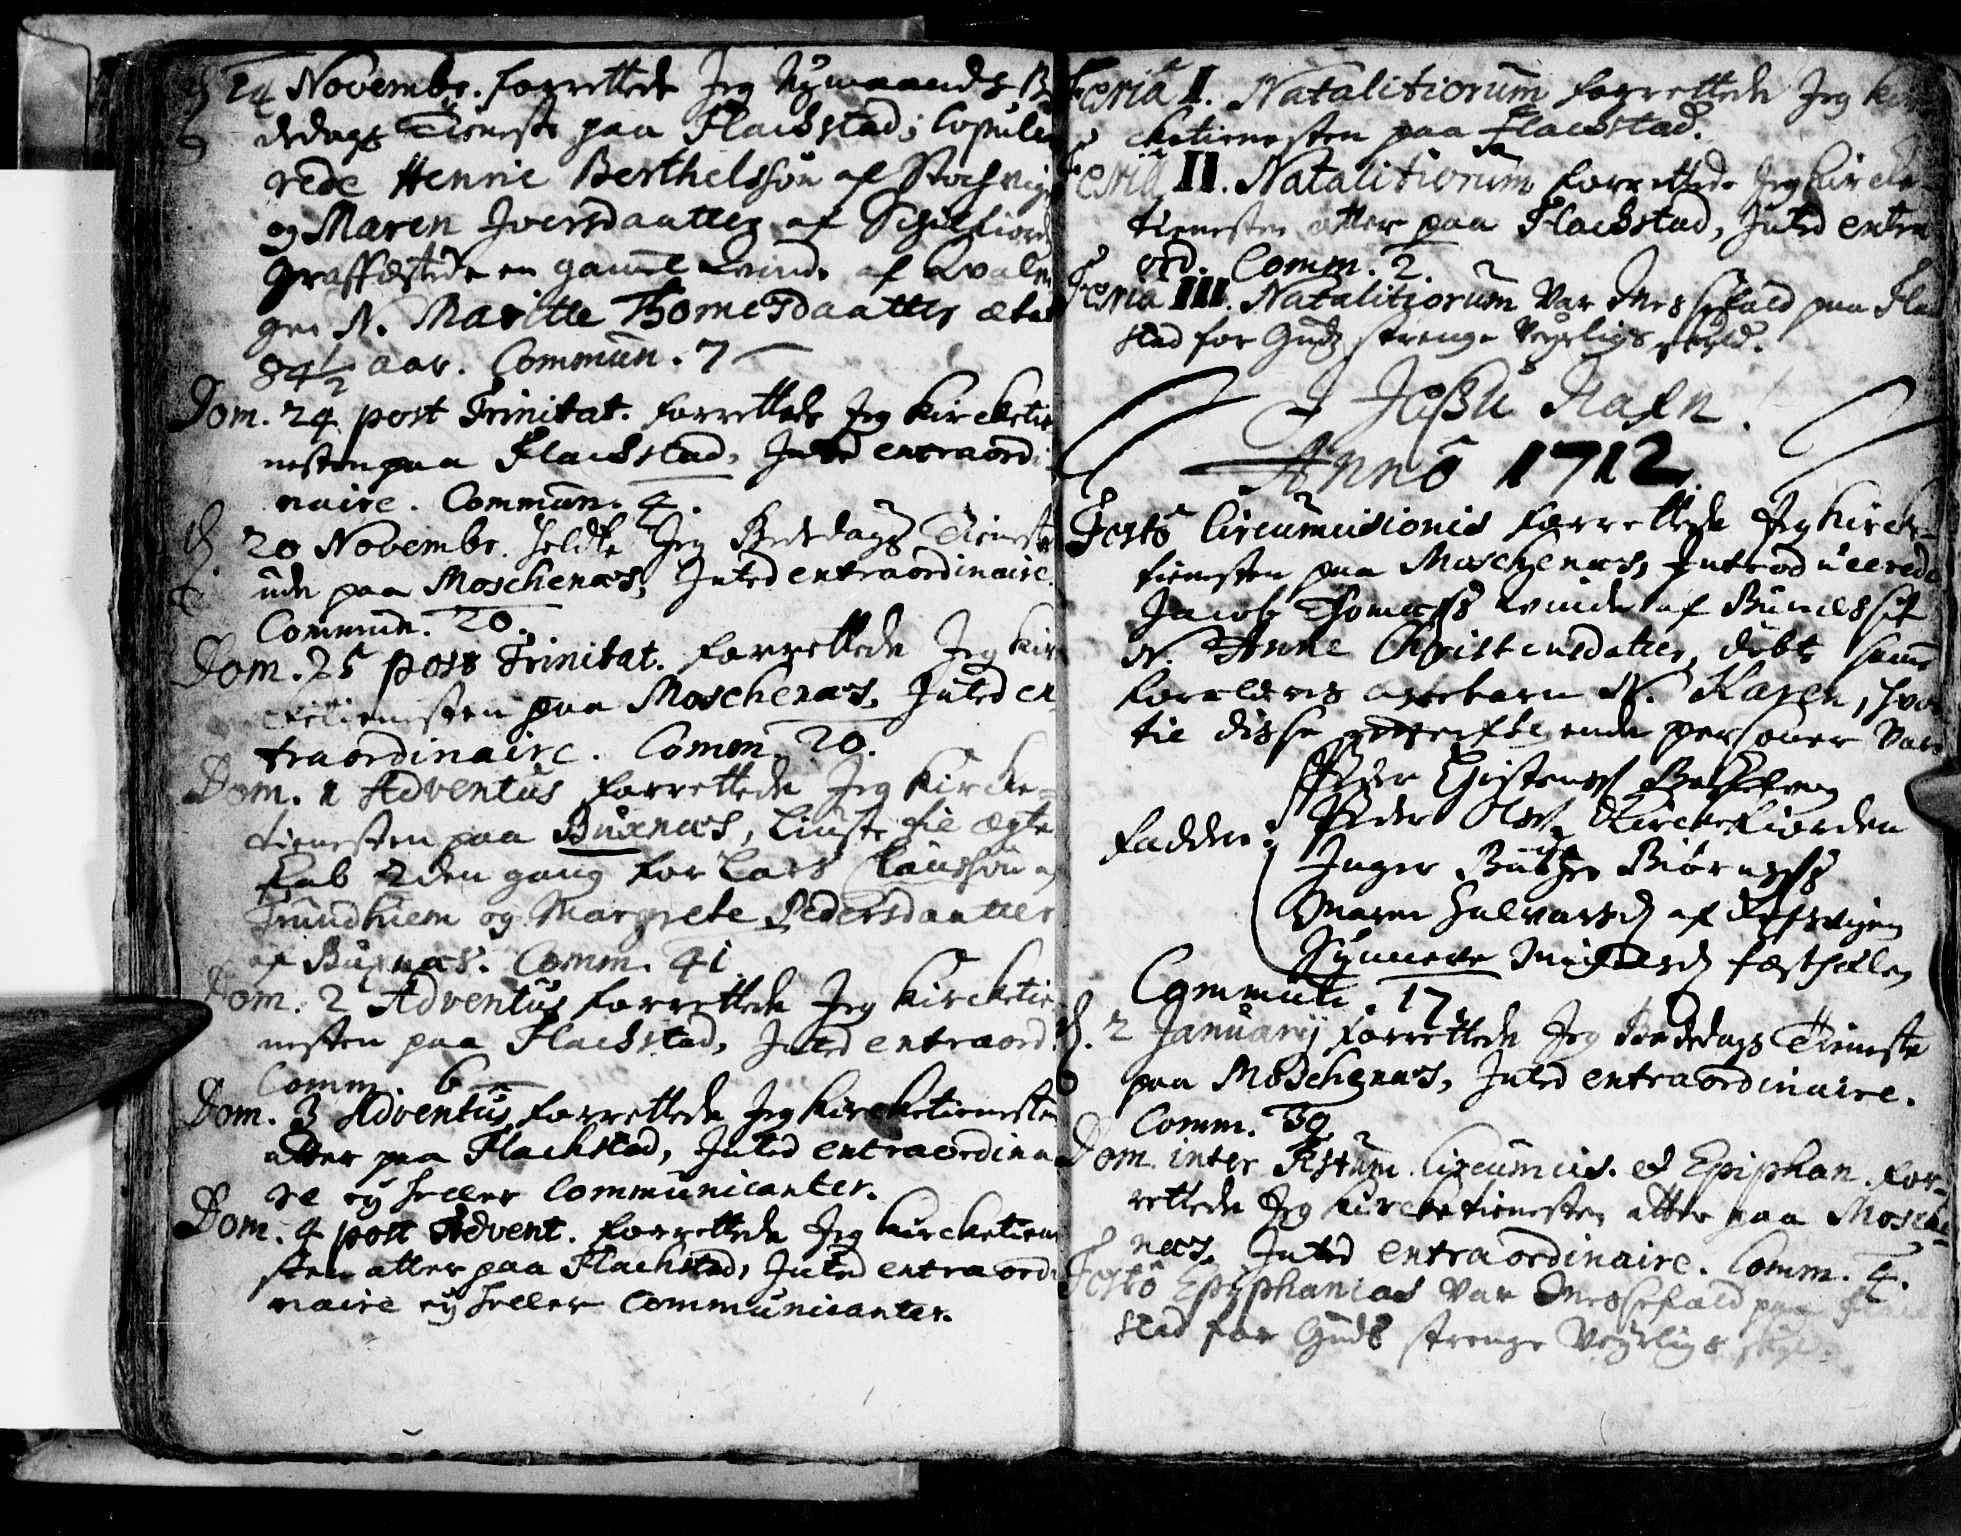 14 Novembr. forrettede Jeg Nymaaneds B
dedags Tieneste paa Flackstad; Copule
rede Henric Berthelssøn af Stochvig
og Maren Iversdaatter af Schielfiord
Graffæstede en gamel Qvinde af Qvaln
gen N. Maritte Thomesdaatter ætat
84½ aar. Commun. 7
Dom. 24 post Trinitat. forrettede Jeg kircketie
nesten paa Flackstad, Inted extraordi
naire. Commun. 4.
20 Novembr. holdte Jeg Bededags Tieneste
ude paa Moschenæs, Inted extraordinaire.
Commun. 20.
Dom. 25 post Trinitat. forrettede Jeg kir
cketienesten paa Moschenæs, Inted ex
traordinaire. Comm. 20.
Dom. 1 Adventus forrettede Jeg Kircke-
tienesten paa Buxnæs, liuste til ægte
skab 2den gang for Lars Claussøn a
Trundhiem og Margrete Pedersdaatter
af Buxnæs. Comm. 41
Dom. 2 Adventus forrettede Jeg kircketie
nesten paa Flackstad, Inted extraord.
Comm. 6
Dom. 3 Adventus forrettede Jeg kircketienesten
atter paa Flackstad, Inted extraordina
re ey heller Communicanter.
Dom. 4 post Advent. forrettede Jeg kircketiene
sten atter paa Flackstad, Inted extraordi
naire ey heller Communicanter.
Feria I. Natalitiorum forrettede Jeg kir
cketienesten paa Flackstad.
Feria II. Natalitiorum forrettede Jeg kircke-
tienesten atter paa Flackstad, Inted extra
ord. Comm. 2.
Feria III. Natalitiorum var Messefald paa Flack
stad for Guds strenge Veyrligs skyld.
I Jesu Nafn.
Anno 1712
Festo Circumcisionis forrettede Jeg kircke-
tienesten paa Moschenæs, Introducerede
Jacob Thomæss Qvinde af Sunds
N. Anne Christensdatter, døbte samme
forældres ægtebarn N. Karen, hvor
til disse efterfølgende personer vare
Peder Christenss
Faddere: Peder Olss Kirckefiorden
Inger Biørns
Maren Halvarsd af
Synneve
Communi. 17.
2 January forrettede Jeg Bededags Tieneste
paa Moschenæs, Inted extraordinaire.
Comm. 39
Dom. inter Festum Circumcis. et Epiphan. for-
rettede Jeg kircketienesten atter paa Mosche-
næs, Inted extraordinaire. Comm. 4.
Festo Epiphanias var Messefald paa Flack
stad for Guds strenge Veyrligs skyld.